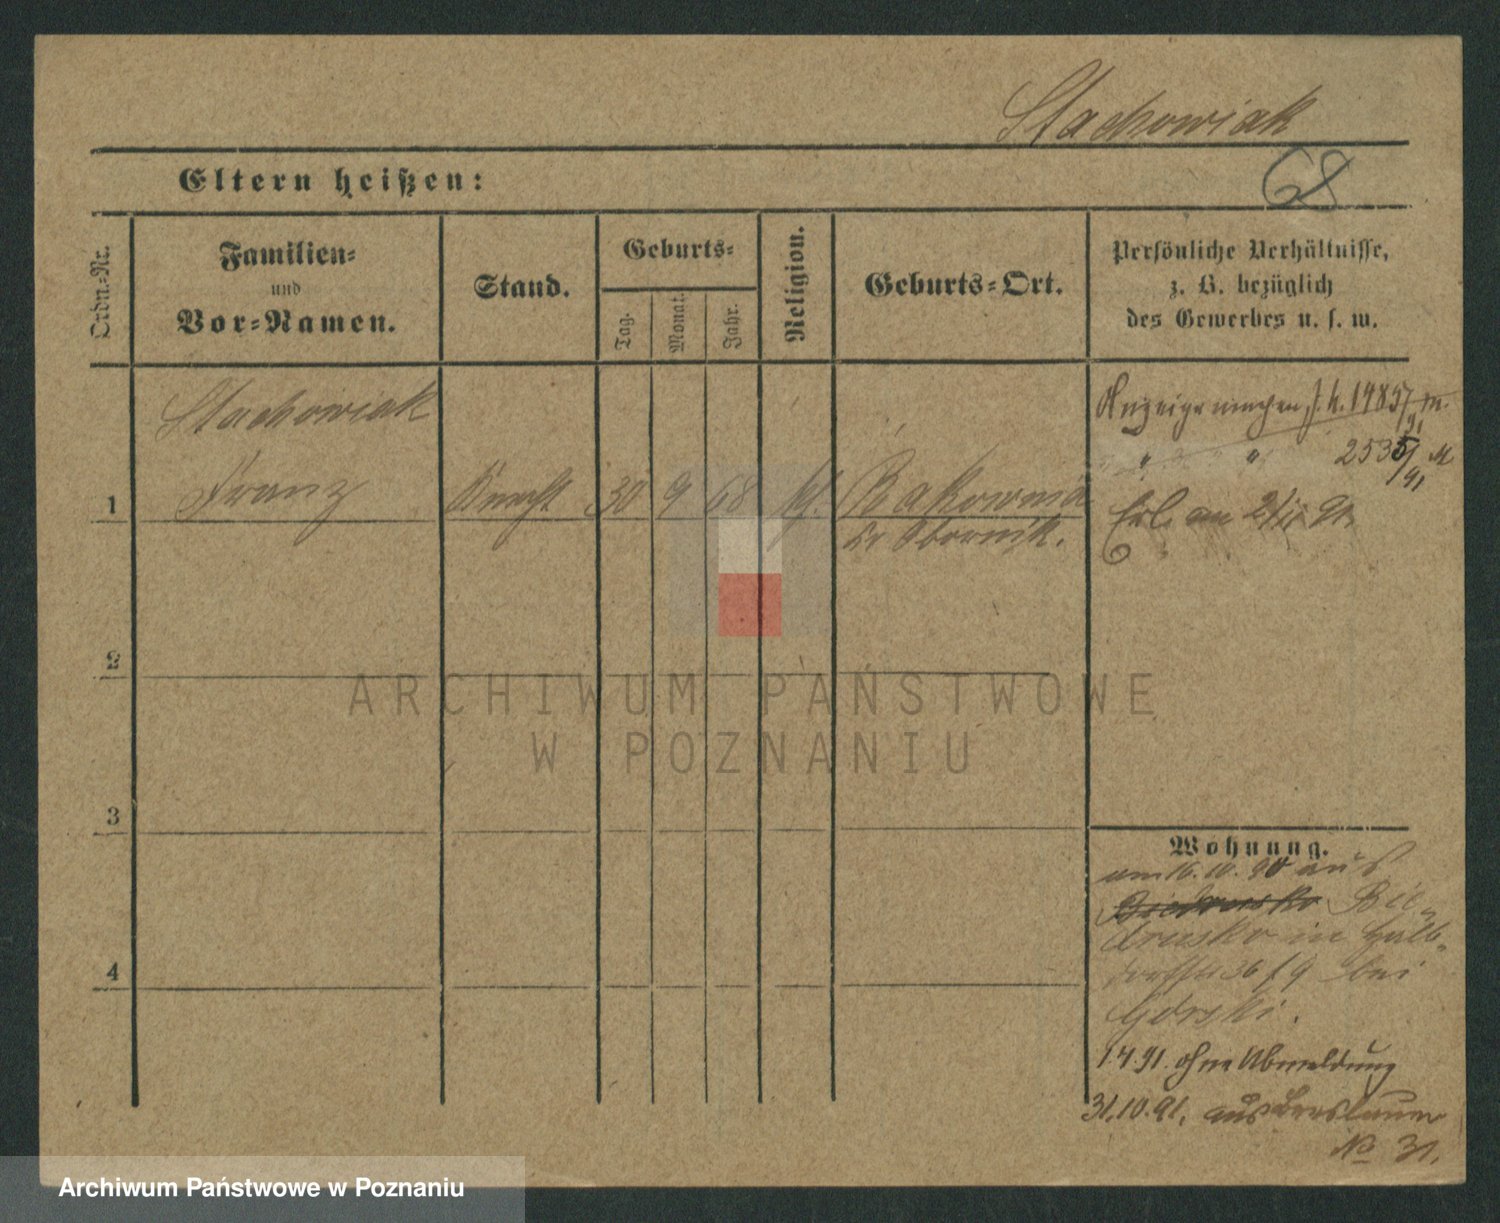 Stachowiak
68
Eltern heißen:
Ordn.-Nr.
Familien-
und
Vor-Namen.
Stand.
Geburts-
Tag.
Monat.
Jahr.
Religion.
Geburts-Ort.
Persönliche Verhältnisse,
z. B. bezüglich
des Gewerbes u. s. w.
Stachowiak
1 Franz Knecht 30 9 68 kt. Rakownia
Kr Obornik.
2
3
4
" " 2535/91 M
Wohnung.
am 16.10.90 aus
Biedrusko Bie-
drusko in Halb-
dorfstr 36/9 bei
Górski.
1.4.91. ohne Abmeldung
31.10.91. aus
No 31.
ARCHIWUM PAŃSTWOWE
W POZNANIU
Archiwum Państwowe w Poznaniu